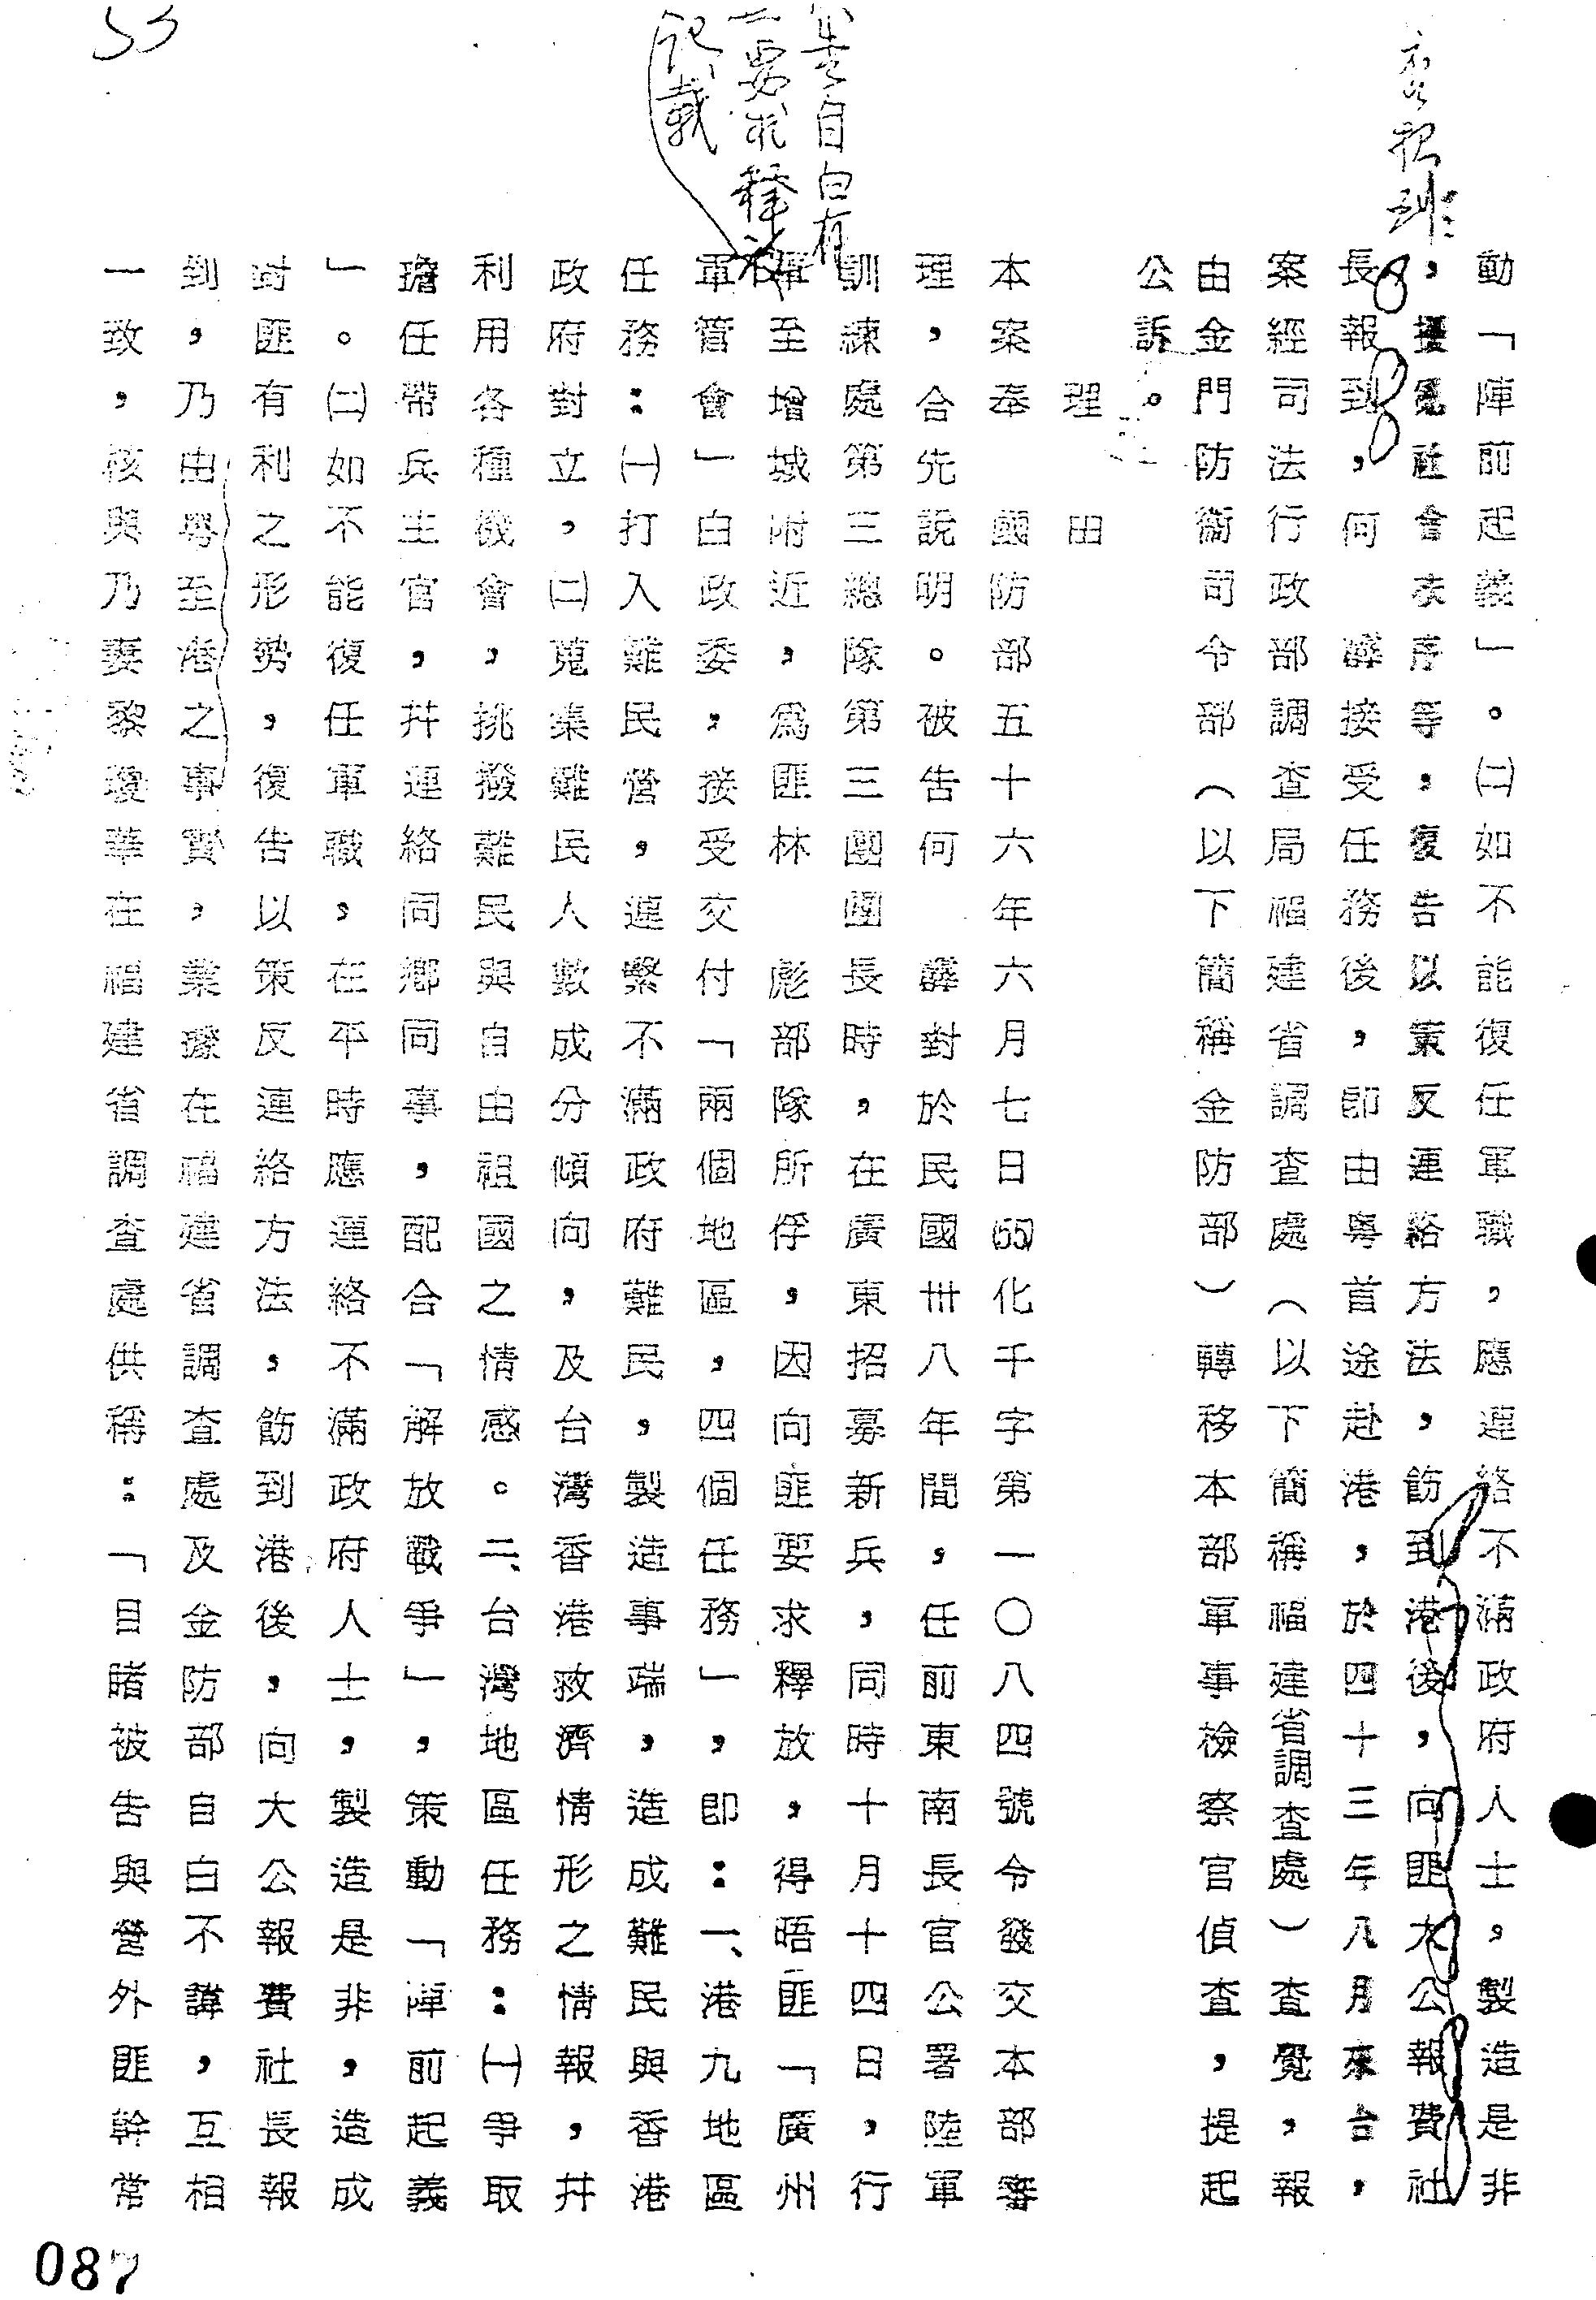 動「陣前起義」。㈡如不能復任軍職，應連絡不滿政府人士。製造是非
，擾亂社會秩序等，復告以策反連絡方法，飭到港後，向匪大公報費社
長報到，何　薛接受任務後，即由粵首途赴港，於四十三年八月來台，
案經司法行政部調查局福建省調查處（以下簡稱福建省調查處）查覺，報
由金門防衞司令部（以下簡稱金防部）轉移本部軍事檢察官偵查，提起
公訴。
理　由
本案奉　國防部五十六年六月七日(55)化千字第一〇八四號令發交本部審
理，合先說明。被告何　薛對於民國卅八年間，任前東南長官公署陸軍
訓練處第三總隊第三團團長時，在廣東招募新兵，同時十月十四日，行
軍至增城附近，爲匪林　彪部隊所俘，因向匪要求釋放，得晤匪「廣州
軍管會」白政委，接受交付「兩個地區，四個任務」，即：一、港九地區
任務：㈠打入難民營，連繫不滿政府難民，製造事端，造成難民與香港
政府對立，㈡蒐集難民人數成分傾向，及台灣香港救濟情形之情報，幷
利用各種機會，挑撥難民與自由祖國之情感。二、台灣地區任務：㈠爭取
擔任帶兵主官，幷連絡同鄉同事，配合「解放戰爭」，策動「陣前起義
」。㈡如不能復任軍職，在平時應連絡不滿政府人士，製造是非，造成
對匪有利之形勢，復告以策反連絡方法，飭到港後，向大公報費社長報
到，乃由粵至港之事實，業據在福建省調查處及金防部自白不諱，互相
一致，核與乃妻黎瓊華在福建省調查處供稱：「目睹被告與營外匪幹常
記載
要求釋放
自白有
087